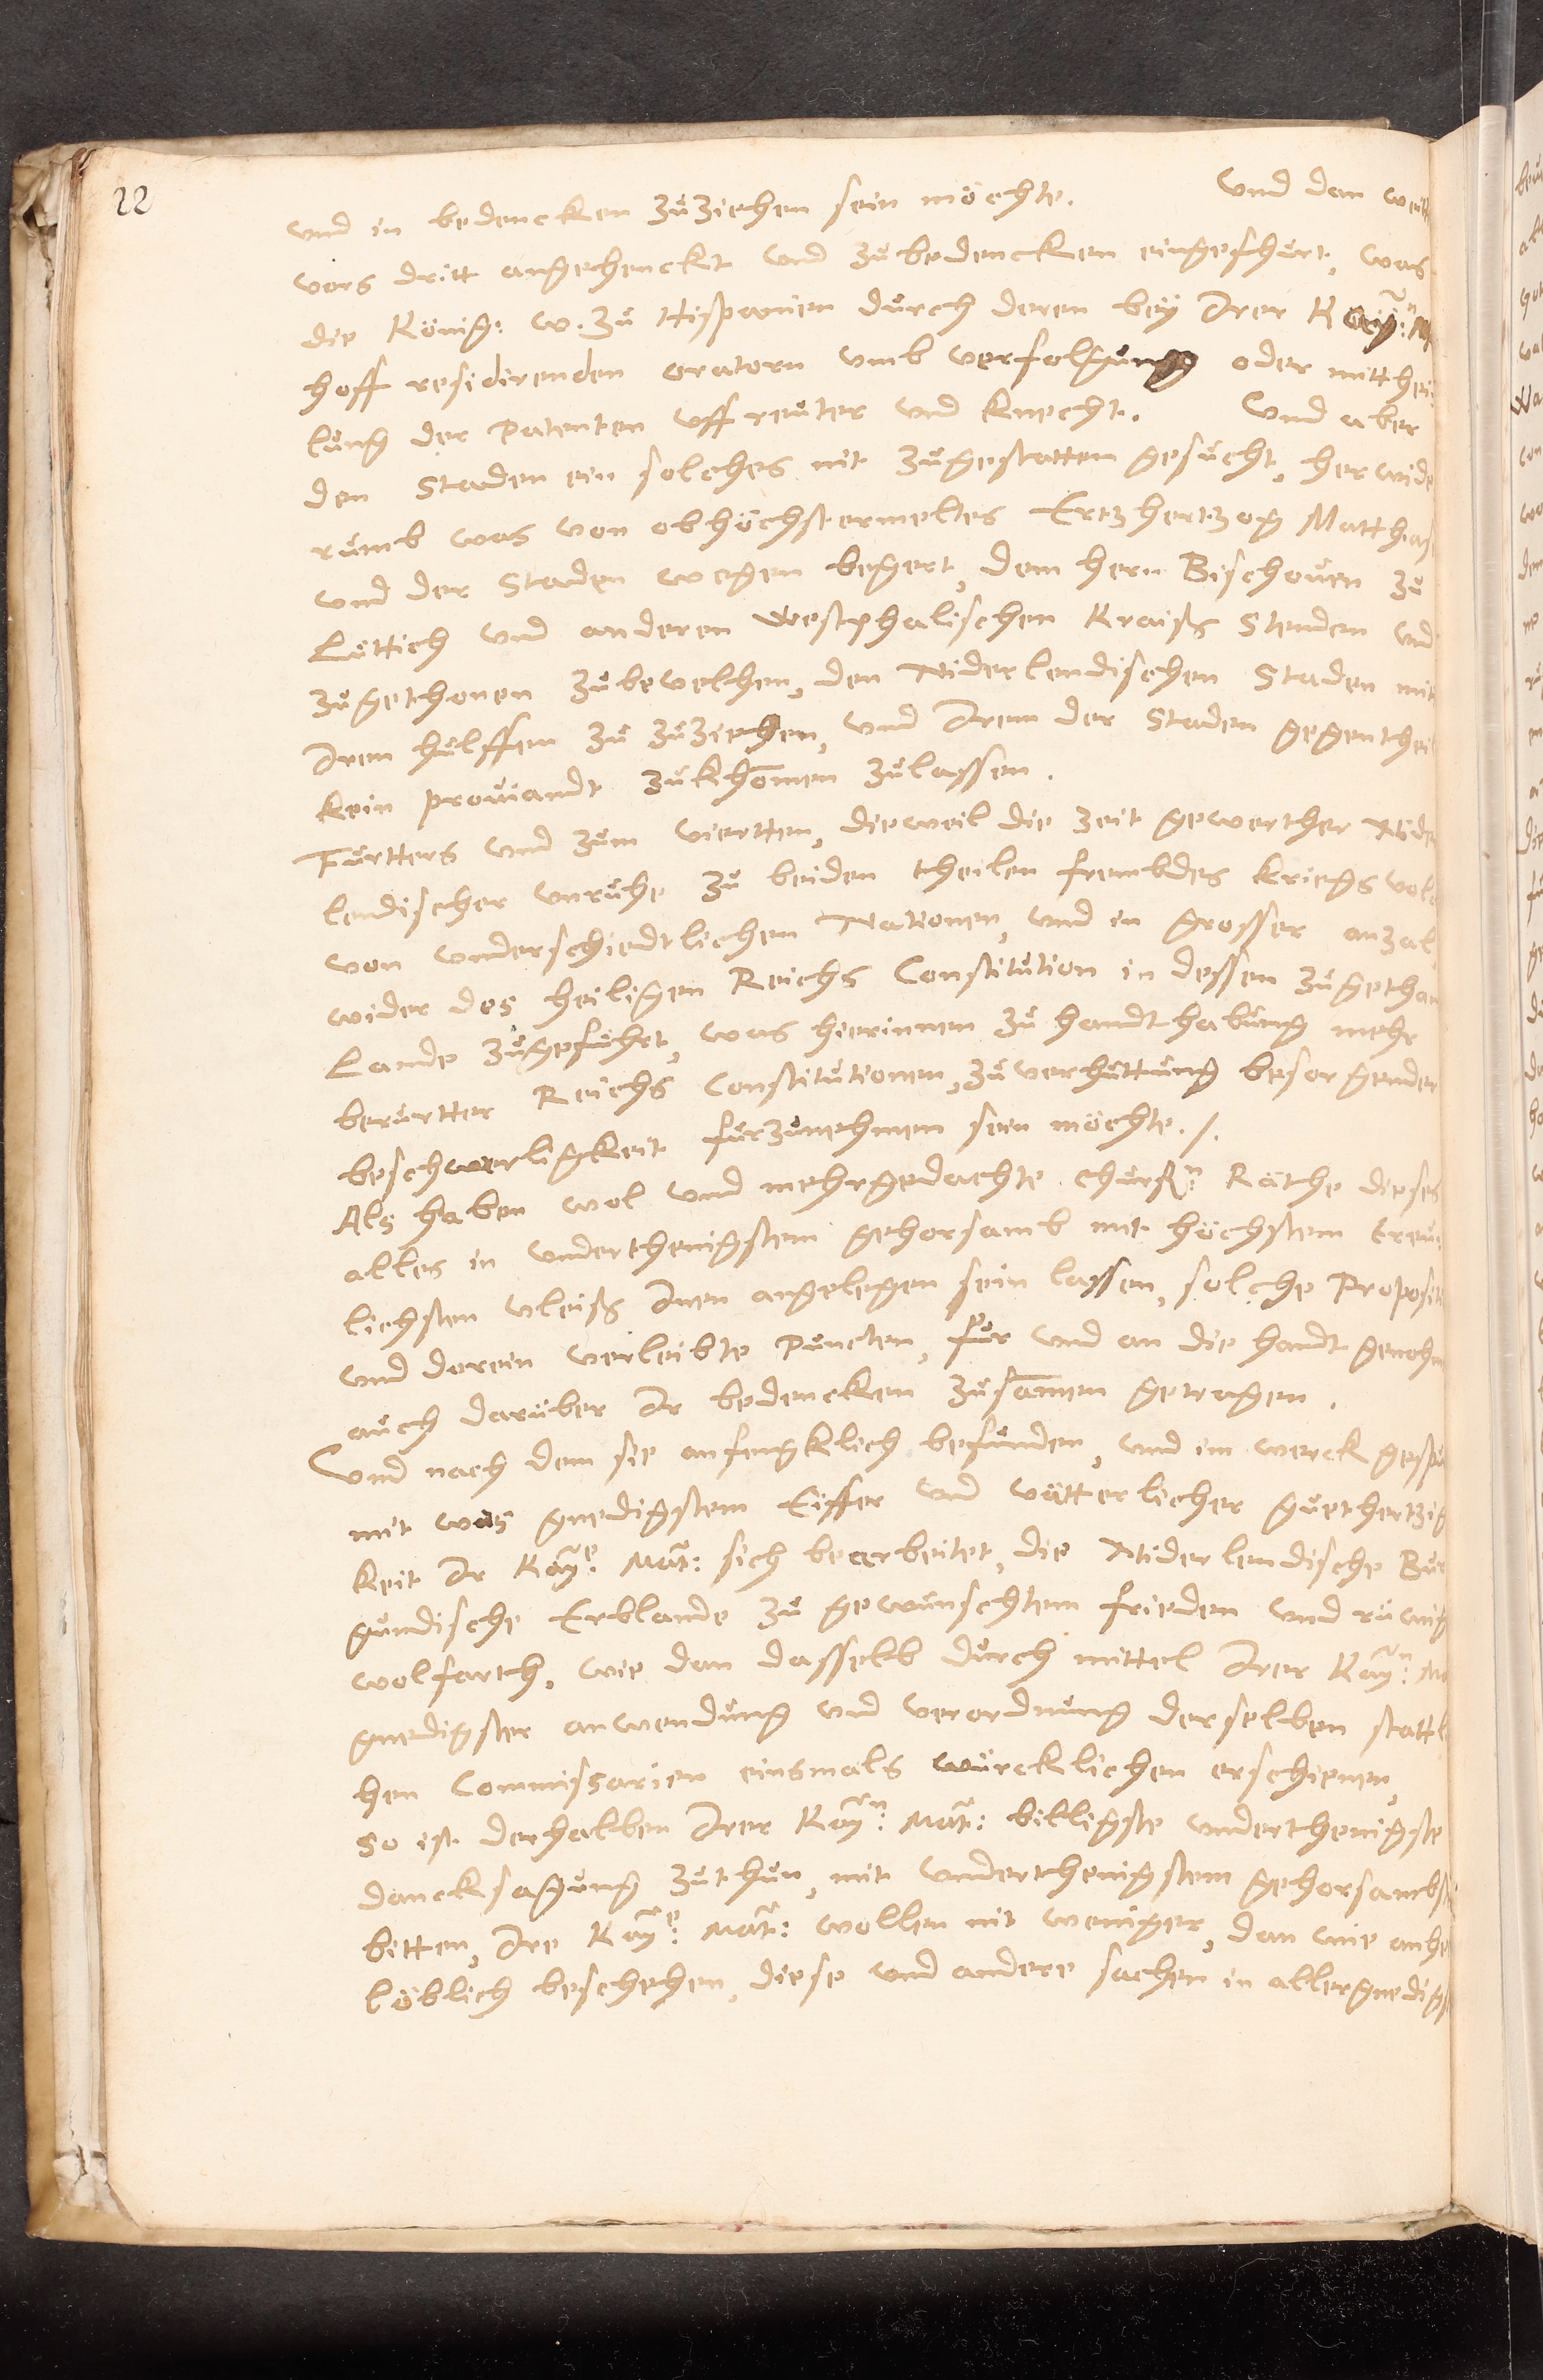 22
vnd in bedencken zuziehen sein möchte. Vnd dan weitt
vors dritt angehenckt vnd zubedencken eingefhürt, was
die Königs: w. zu Hispanien durch deren bey Irer Kaÿ:n M
hoff residirenden oratorn vmb verfolgung oder mitthei=
lung der Patenten vff reuter vnd knecht. Vnd aber
den Staden ein solches nit zugestatten gesucht, herwide
rumb was von obhöchstermeltes Ertzhertzog Matthias
vnd der Staden wegen begert, dem hern Bischouen zu
Lüttich vnd anderen Westphalischen Kraiß Stenden vnd
zugethonen zubevelhen, den Niderlendischen Staden mit
Irem hülffen zu zuziehen, vnd Irem der Staden gegentheil
kein prouiandt zukhomen zulassen.
Fürtters vnd zum viertten, dieweil die zeit gewerther Nider
lendischer vnruhe zu beiden theilen frembdes kriegsvolc
von vnderschiedtlichen Nationen, vnd in grosser anzal,
wider des heiligen Reichs Constitution in dessen zugethan
Lande zugefuhrt, was hierinnen zu handthabung mehr
berurtter Reichs Constitutionen, zuverhüttung besorgender
beschwerligkeit fürzunehmen sein möchte./.
Als haben wol vnd mehrgedachte churf:n Räthe dieses
alles in vnderthenigstem gehorsamb mit höchstem treu=
lichsten vleiß Inen angelegen sein lassen, solche Propositi
vnd dorein verleibte Puncten, für vnd an die handt genohm
auch darüber Ir bedencken zusamen getragen.
Vnd nach dem sie anfengklich befunden, vnd im werck gespü
mit was gnedigstem Eiffer vnd vätterlicher guethertzig
keit Ir Kaÿ:e Mat: sich bearbeitet, die Niderlendische Bur
gundische Erblande zu gewünschtem frieden vnd ruwig
wolfarth, wie dan dasselb durch mittel Irer Kaÿ:n Ma
gnedigster anwendung vnd verordnung derselben stattl
hen Commissarien einsmals würcklichen erschienen,
so ist derhalben Irer Kaÿ:n Mat: billigste vnderthenigste
dancksagung zuthun, mit vnderthenigstem gehorsambst
bitten, Ire Kaÿ:e Mat: wollen nit weniger, dan wie anhe
löblich beschehen, diese vnd andere sachen in allergnedigs